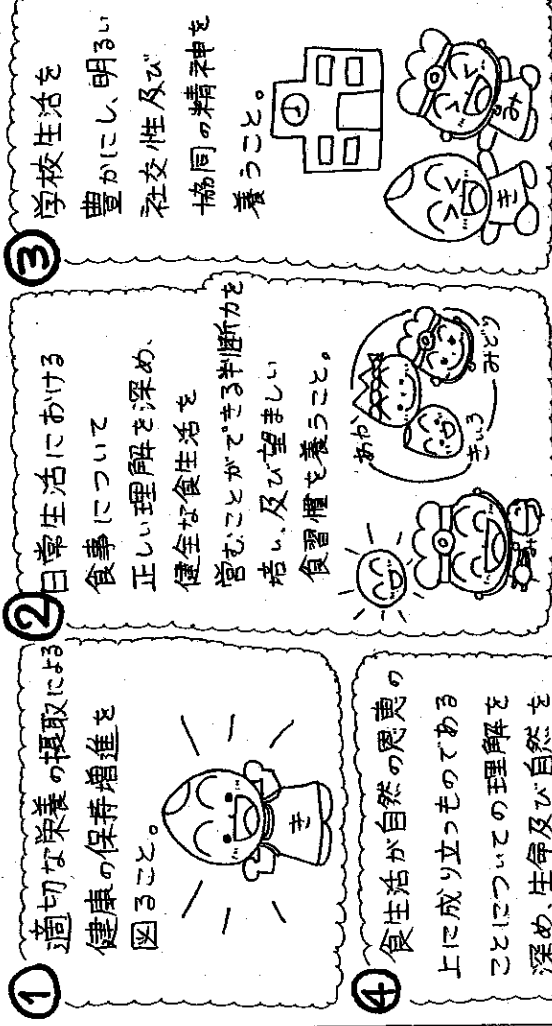 ① 適切な栄養の摂取による
健康の保持増進を
図ること。
き
② 日常生活における
食事について
正しい理解を深め、
健全な食生活を
営むことができる判断力を
培い、及び望ましい
食習慣を養うこと。
あか
きいろ
みどり
み
③ 学校生活を
豊かにし、明るい
社交性及び
協同の精神を
養うこと。
き
み
④ 食生活が自然の恩恵の
上に成り立つものである
ことについての理解を
深め、生命及び自然を